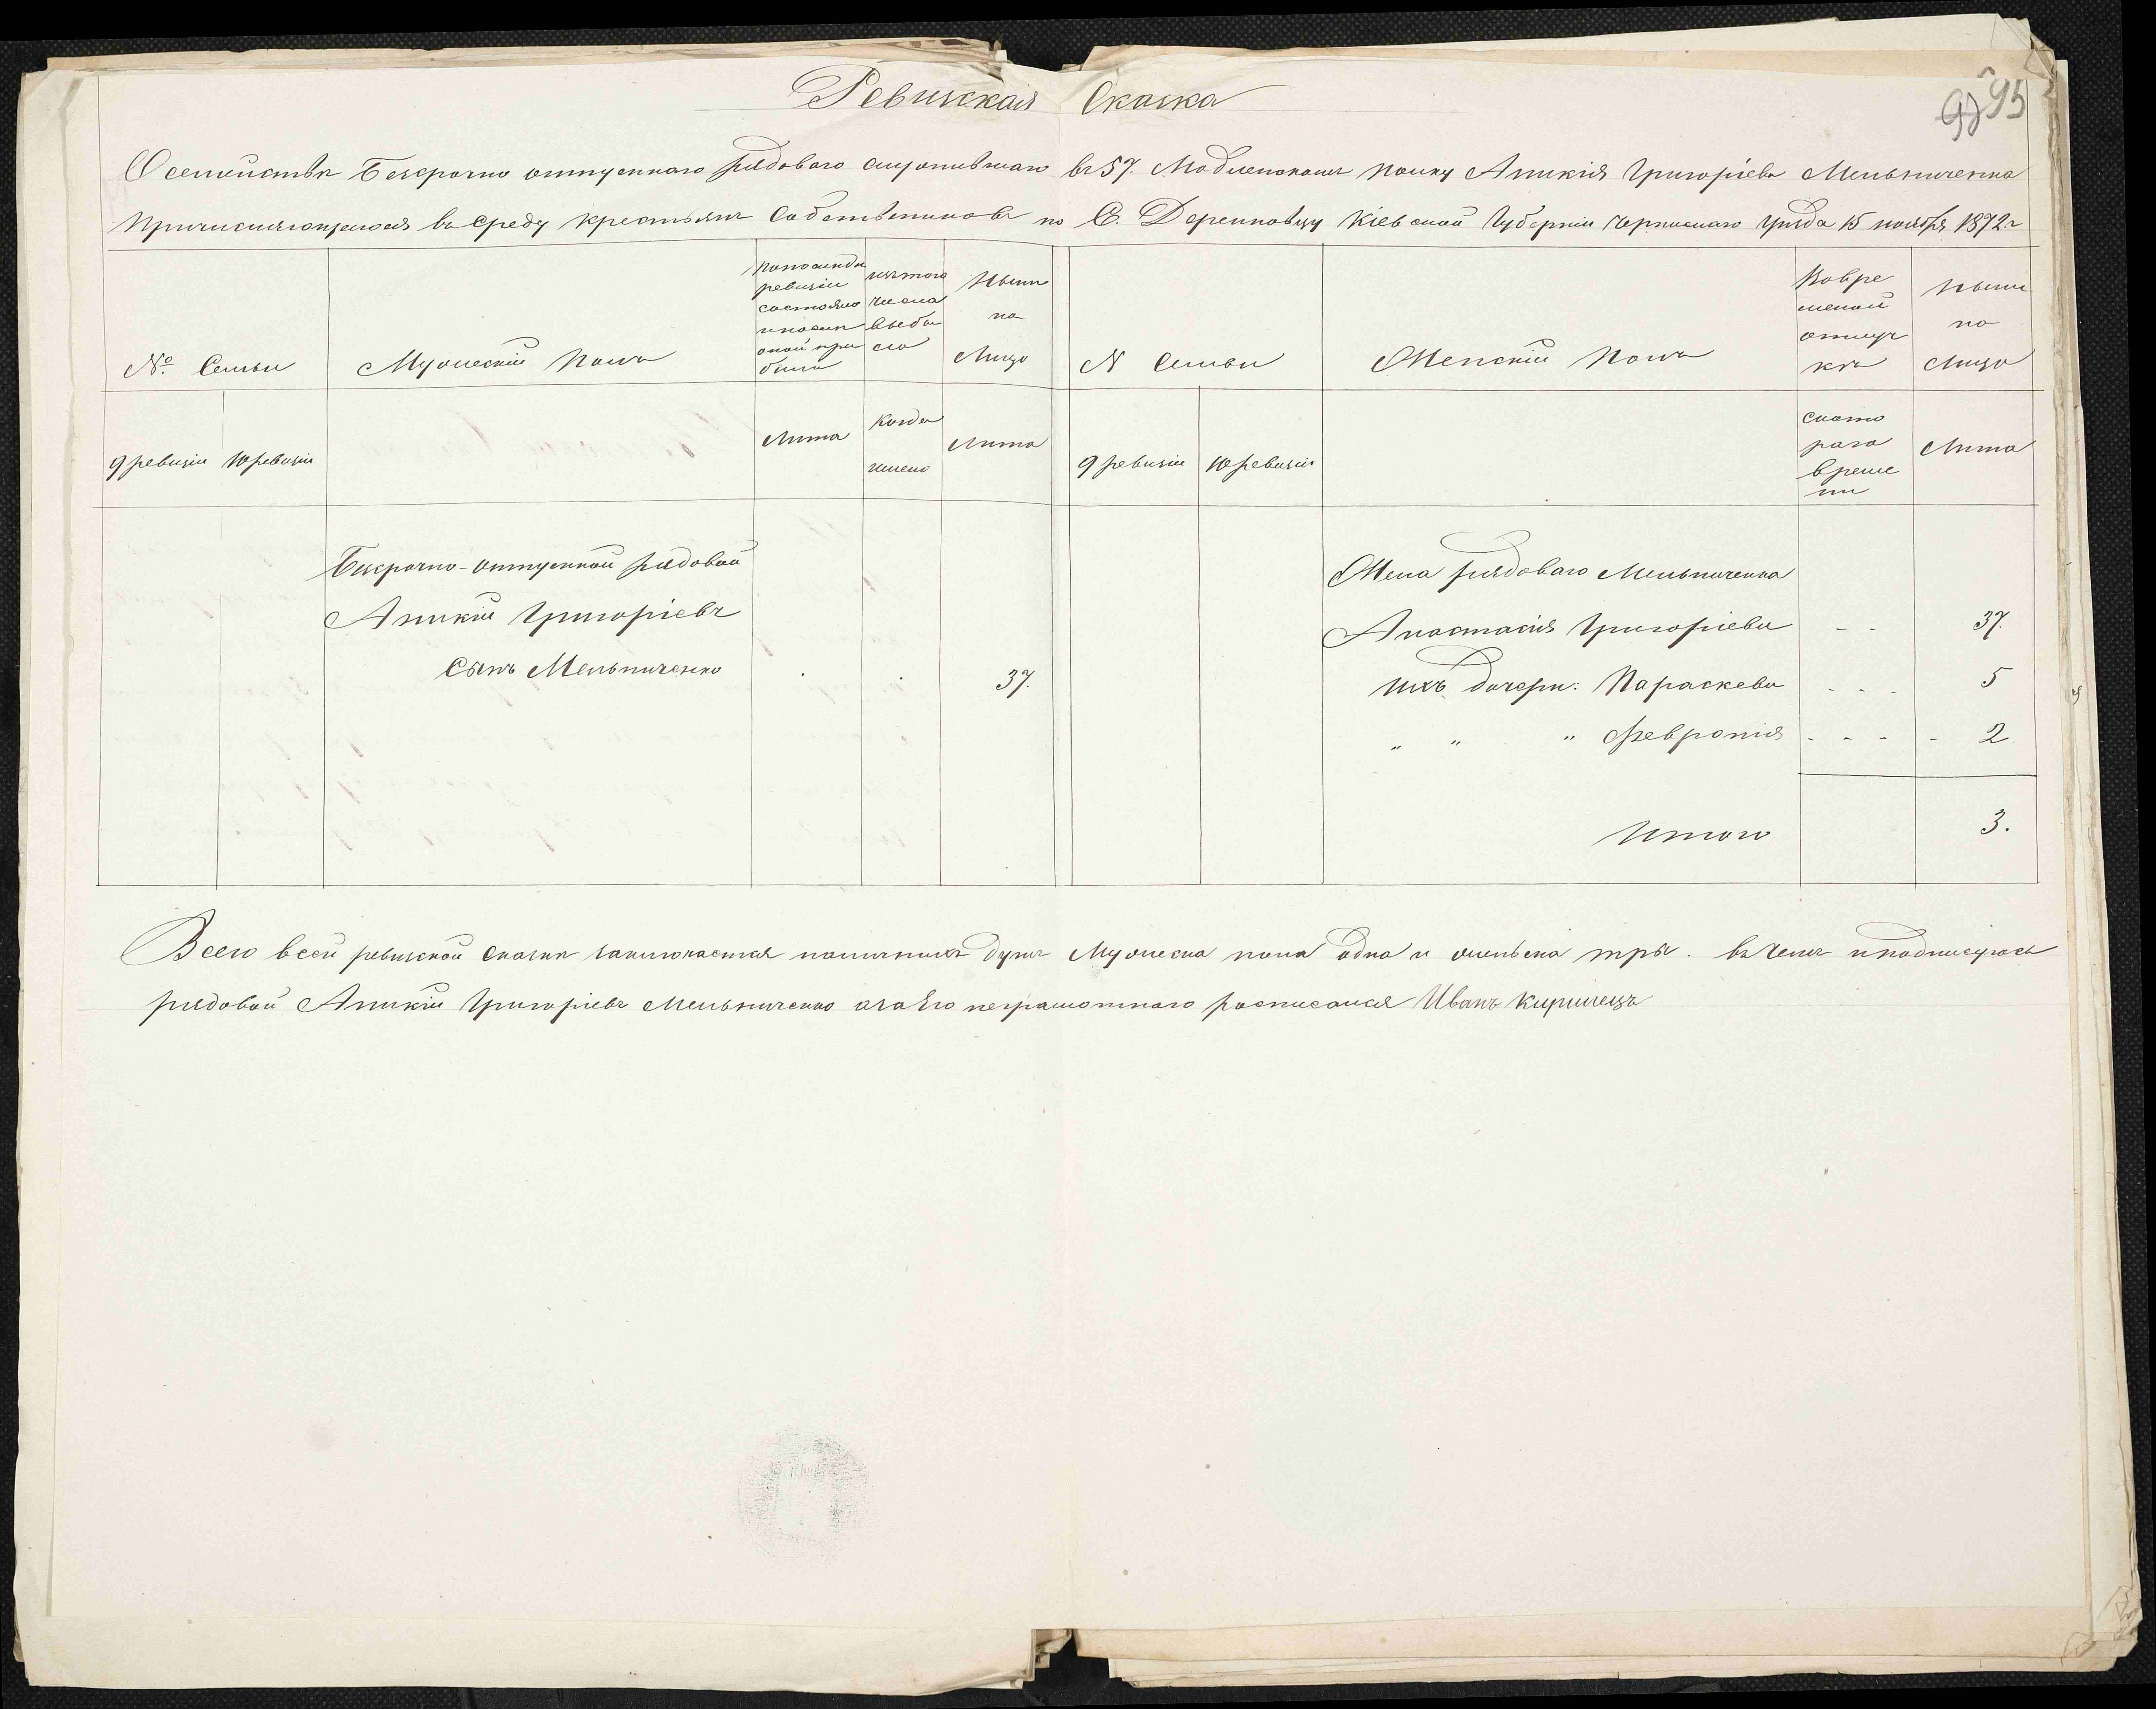 Ревизская Сказка
95
О семействѣ Безсрочно отпускнаго рядоваго служившаго въ 57. Модлинскомъ полку Аникія Григоріева Мельниченка
Причисляющегося въ среду крестьянъ Собственниковъ по С. Деренковцу Кіевской Губерніи Черкаскаго уѣзда 15 ноября 1872 г
№ Семьи
Мужескій полъ
По послѣдн
ревизіи
состояло
и послѣ
оной при
было
изъ того
числа
выбы
ло
Нынѣ
на
Лицо
N Семьи
Женскій полъ
Вовре
менной
отлуч
кѣ
Нынѣ
на
Лицо
9 ревизіи
10 ревизіи
Лѣта
Когда
имено
Лѣта
9 ревизіи
10 ревизіи
съ кото
раго
време
ни
Лѣта
Безсрочно-отпускной рядовой
Аникій Григоріевъ
сынъ Мельниченко
37.
Жена рядоваго Мельниченка
Анастасія Григоріева - - 37.
ихъ дочери: Параскева - - - 5
" " " Февронія - - - - 2
Итого 3.
Всего всей ревизской сказкѣ заключается наличныхъ душъ Мужеска пола одна и женьска три. въ чемъ и подписуюсь
рядовой Аникій Григоріевъ Мельниченко а за Его неграмотнаго росписался Иванъ Кирилецъ